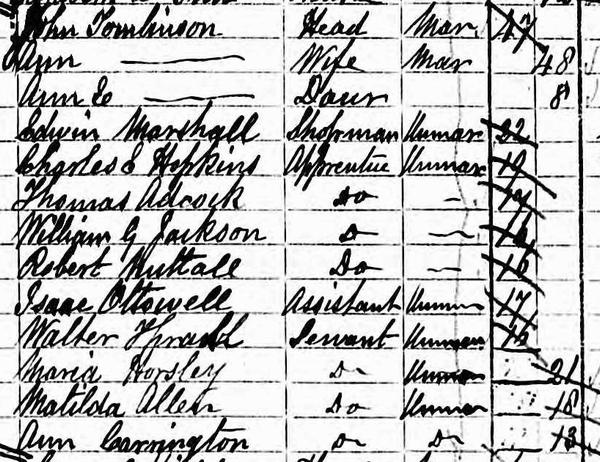 John Tomlinson Head Mar 47
Ann —— Wife Mar 48
Ann E —— Daur 8
Edwin Marshall Shopman Unmar 22
Charles E Hopkins Apprentice Unmar 19
Thomas Adcock Do —
William G Jackson Do —
Robert Nuttall Do — 16
Isaac Ottewell Assistant Unmar 17
Walter Servant Unmar
Maria Horsley Do Unmar 21
Matilda Allen Do Unmar 18
Ann Carrington Do Do 13